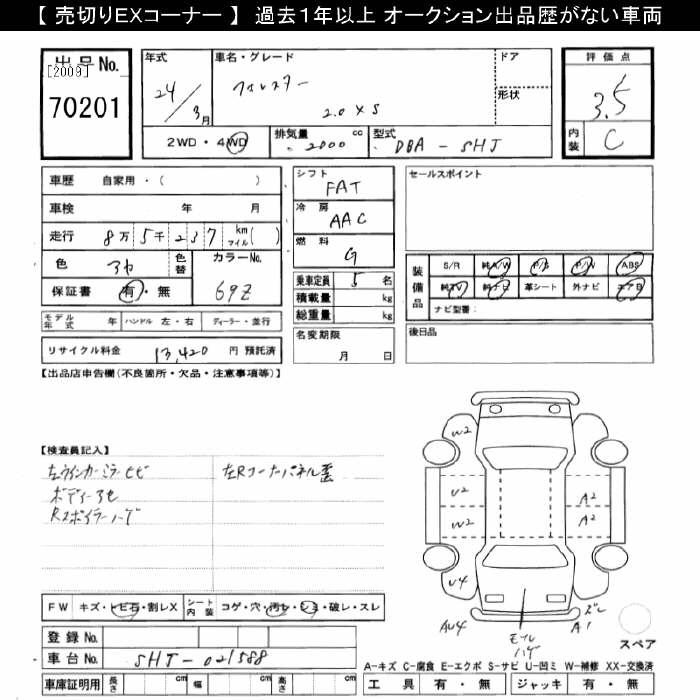 【 売切りEXコーナー 】 過去1年以上 オークション出品歴がない車両
出品No.
[2009]
70201
年式
24/3月
車名・グレード
フォレスター
2.0 XS
ドア
形状
評価点
3.5
内装
C
2WD・4WD
排気量 2000 cc
型式 DBA - SH5
車歴 自家用・( )
車検 年 月
走行 8万5千237 km マイル( )
色 アカ 色替 カラーNo. 69Z
保証書 有・無
シフト
FAT
冷房
AAC
燃料
G
乗車定員 5 名
積載量 kg
総重量 kg
セールスポイント
装備品
S/R 純A/W P/S P/W ABS
純TV 純ナビ 革シート 外ナビ エアB
ナビ型番:
モデル年式 年 ハンドル 左・右 ディーラー・並行
名変期限
月 日
後日品
リサイクル料金 13,420 円 預託済
【出品店申告欄(不良箇所・欠品・注意事項等)】
【検査員記入】
左ウィンカーミラーヒビ
左Rコーナーパネル
ボディーアセ
Rスポイラーハゲ
W2
U2
W2
A2
A2
U4
AU4
モールハゲ
ズレ
A1
スペア
FW キズ・トビ石・割レX シート内装 コゲ・穴・汚レ・シミ・破レ・スレ
登録No.
車台No. SH5-021588
車庫証明用 長さ cm 幅 cm 高さ cm
A-キズ C-腐食 E-エクボ S-サビ U-凹ミ W-補修 XX-交換済
工具 有・無 ジャッキ 有・無